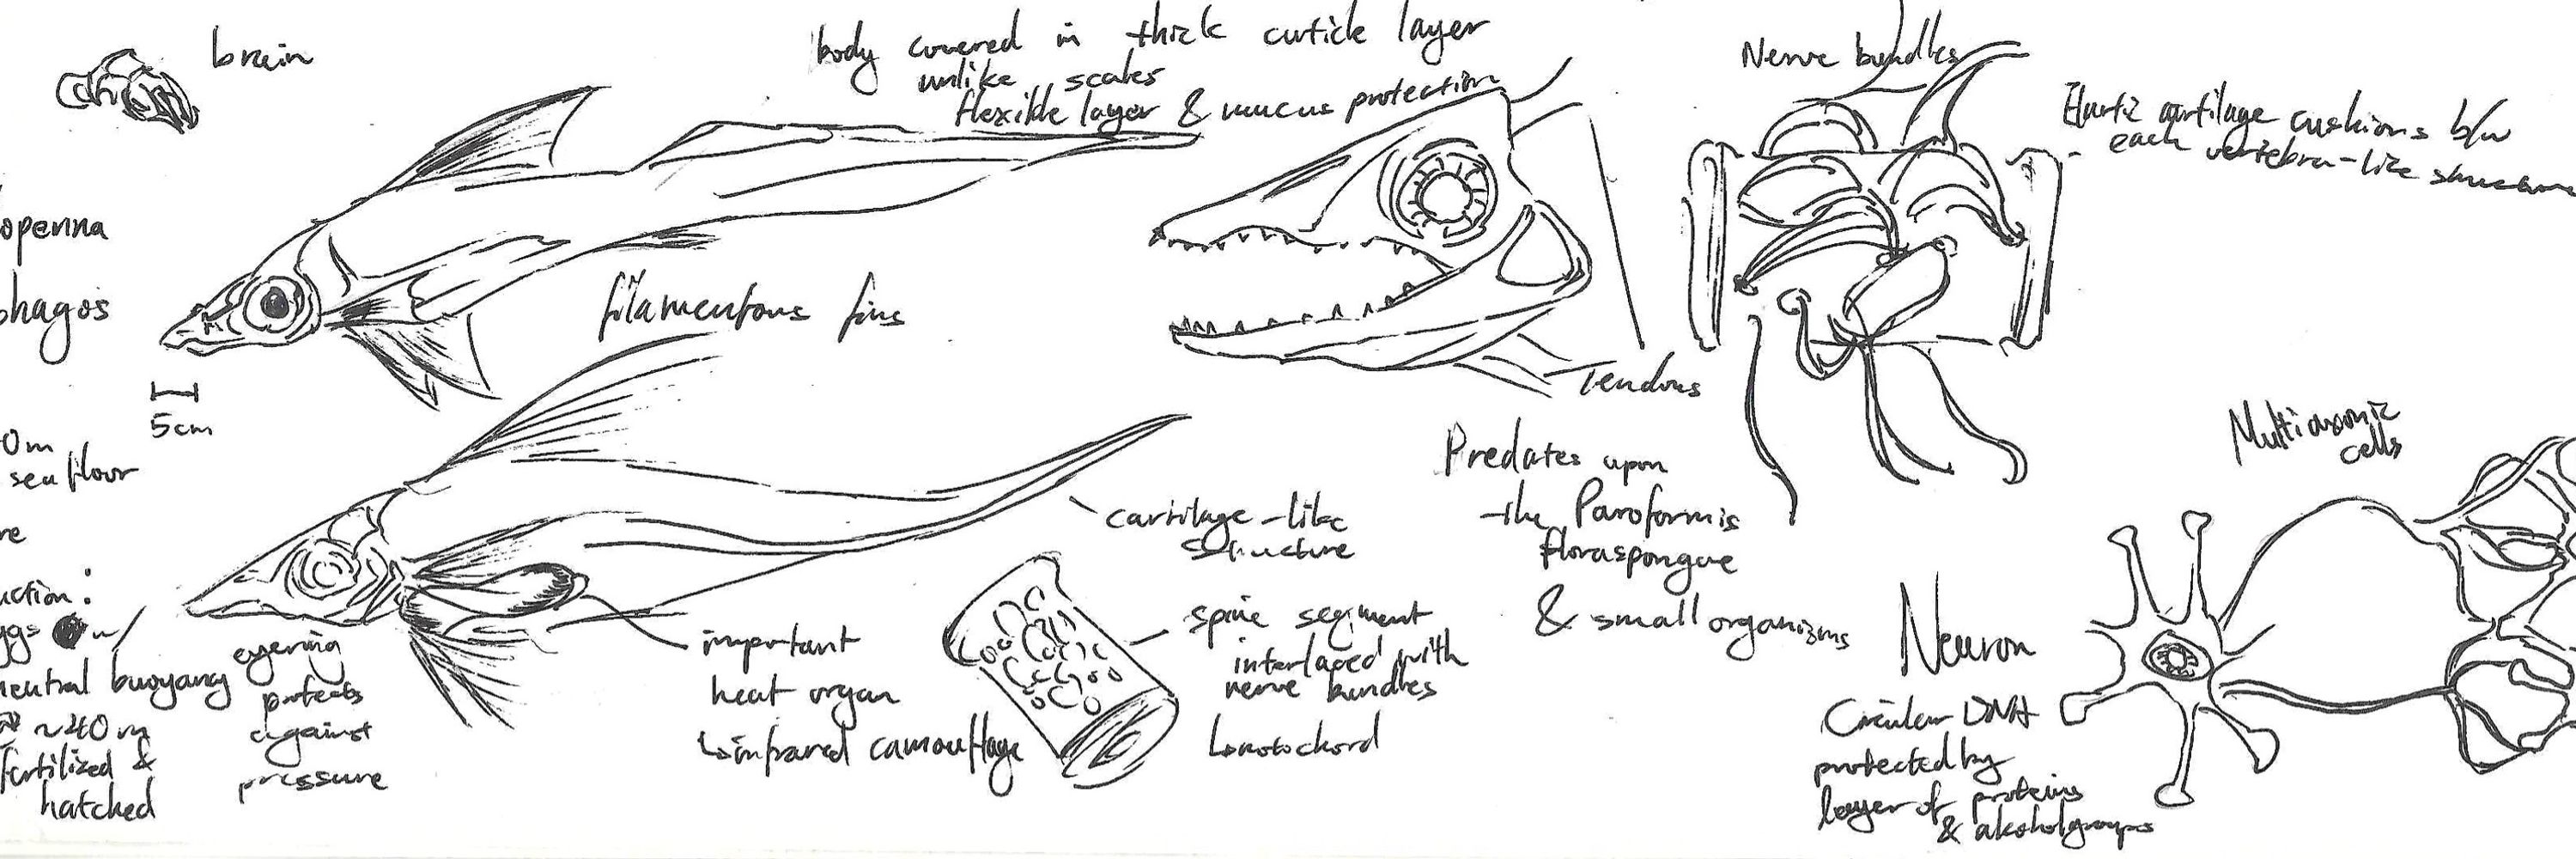 brain
body covered in thick cuticle layer
unlike scales
flexible layer & mucus protection
Nerve bundles
cartilage cushions b/w
each vertebra-like
openna
phagos
filamentous fins
5cm
0m
sea floor
re
Tendons
Multiaxonic
cells
Predates upon
the Paroformis
floraspongae
& small organisms
cartilage-like
structure
spine segment
interlaced with
nerve bundles
↳notochord
uction:
ggs w/
neutral buoyancy
@ ~240m
fertilized &
hatched
eyering
protects
against
pressure
important
heat organ
↳infrared camouflage
Neuron
Circular DNA
protected by
layer of proteins
& alcohol groups